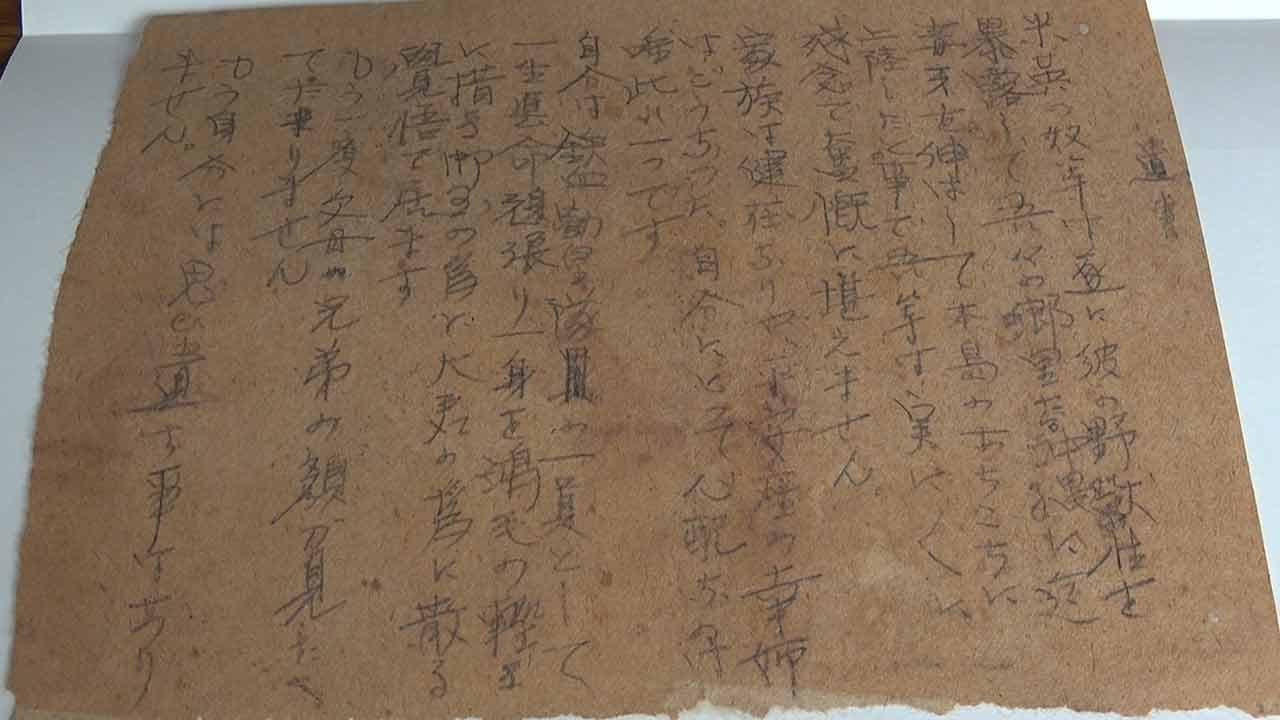 遺書
米英の奴等は遂に彼の野獣性を
暴露して吾々の郷里沖縄に迄
毒牙を伸ばして本島のあちこちに
上陸した事で吾等は実に
残念で憤慨に堪えません。
家族は健在なりや
はどうなつた、自分にとつて心配な
此れ一つです
自分は鉄血勤皇隊員の一員として
一生懸命頑張り一身を鴻毛の軽き
に措き御国の為と大君の為に散る
覚悟で居ます
もう一度父母や兄弟の顔が見たく
てたまりません
もう自分には思ひ遺す事はあり
ません。